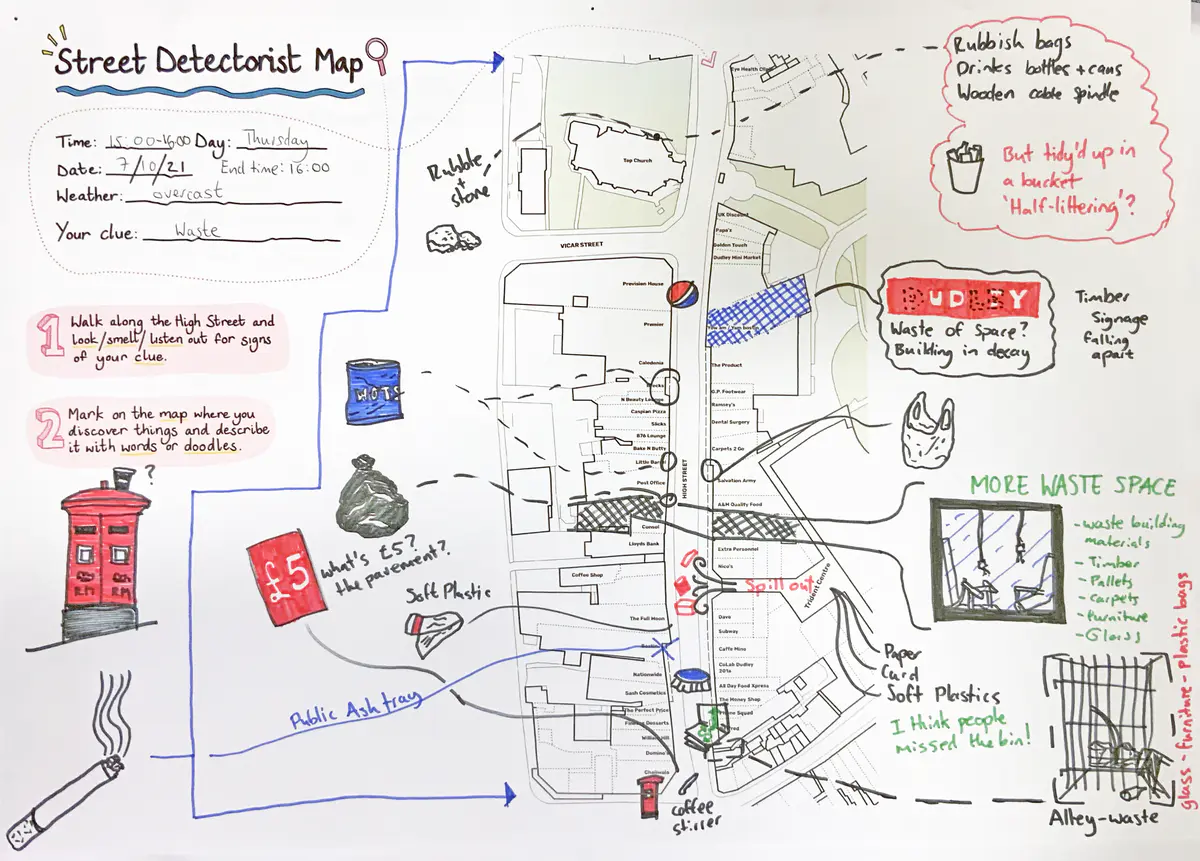 Street Detectorist Map
Time: 15:00-16:00 Day: Thursday
Date: 7/10/21 End time: 16:00
Weather: overcast
Your clue: Waste
1 Walk along the High Street and
look/smell/listen out for signs
of your clue.
2 Mark on the map where you
discover things and describe
it with words or doodles.
?
RM RM
£5
what's £5?
the pavement?
Soft Plastic
Public Ashtray
WOTS
Rubble
+
stone
Eye Health Clinic
Top Church
VICAR STREET
UK Discount
Papa's
Golden Touch
Dudley Mini Market
Provision House
Premier
Caledonia
The Product
N Beauty Lounge
G.P. Footwear
Caspian Pizza
Ramsey's
Slicks
Dental Surgery
B76 Lounge
Bake N Butty
Carpets 2 Go
Little Barrel
HIGH STREET
Post Office
Salvation Army
A&M Quality Food
Consol
Lloyds Bank
Extra Personnel
Nico's
Coffee Shop
Spill out
Trident Centre
The Full Moon
Dava
Subway
Caffe Mine
Nationwide
CoLab Dudley
201a
Sash Cosmetics
All Day Food Xpress
The Perfect Price
The Money Shop
Finesse Desserts
William Hill
Domino's
coffee
stirrer
Rubbish bags
Drinks bottles + cans
Wooden cable spindle
But tidy'd up in
a bucket
'Half-littering'?
DUDLEY
Waste of space?
Building in decay
Timber
Signage
falling
apart
MORE WASTE SPACE
- waste building
materials
- Timber
- Pallets
- carpets
- furniture
- Glass
Paper
Card
Soft Plastics
I think people
missed the bin!
Alley-waste
glass - furniture - Plastic bags